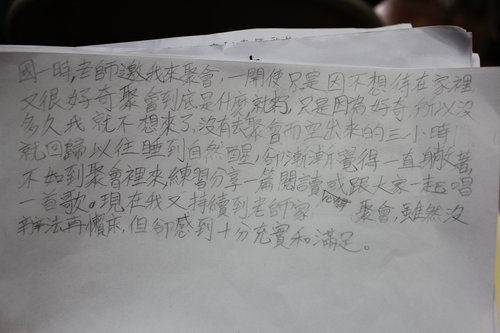 國一時，老師邀我來聚會，一開使只是因不想待在家裡
又很好奇聚會到底是什麼就來，只是因為好奇，所以沒
多久我就不想來了，沒有去聚會而空出來的三小時
就回歸以往睡到自然醒，卻漸漸覺得一直躺著，
不如到聚會裡來，練習分享一篇閱讀，或跟大家一起唱
一首歌。現在我又持續到老師家 聚會，雖然沒
辦法再懶床，但卻感到十分充實和滿足。